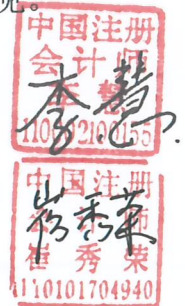 见。
中国注册
会计师
李慧
110001210155
李慧
中国注册
会计师
崔秀荣
110101704940
崔秀荣